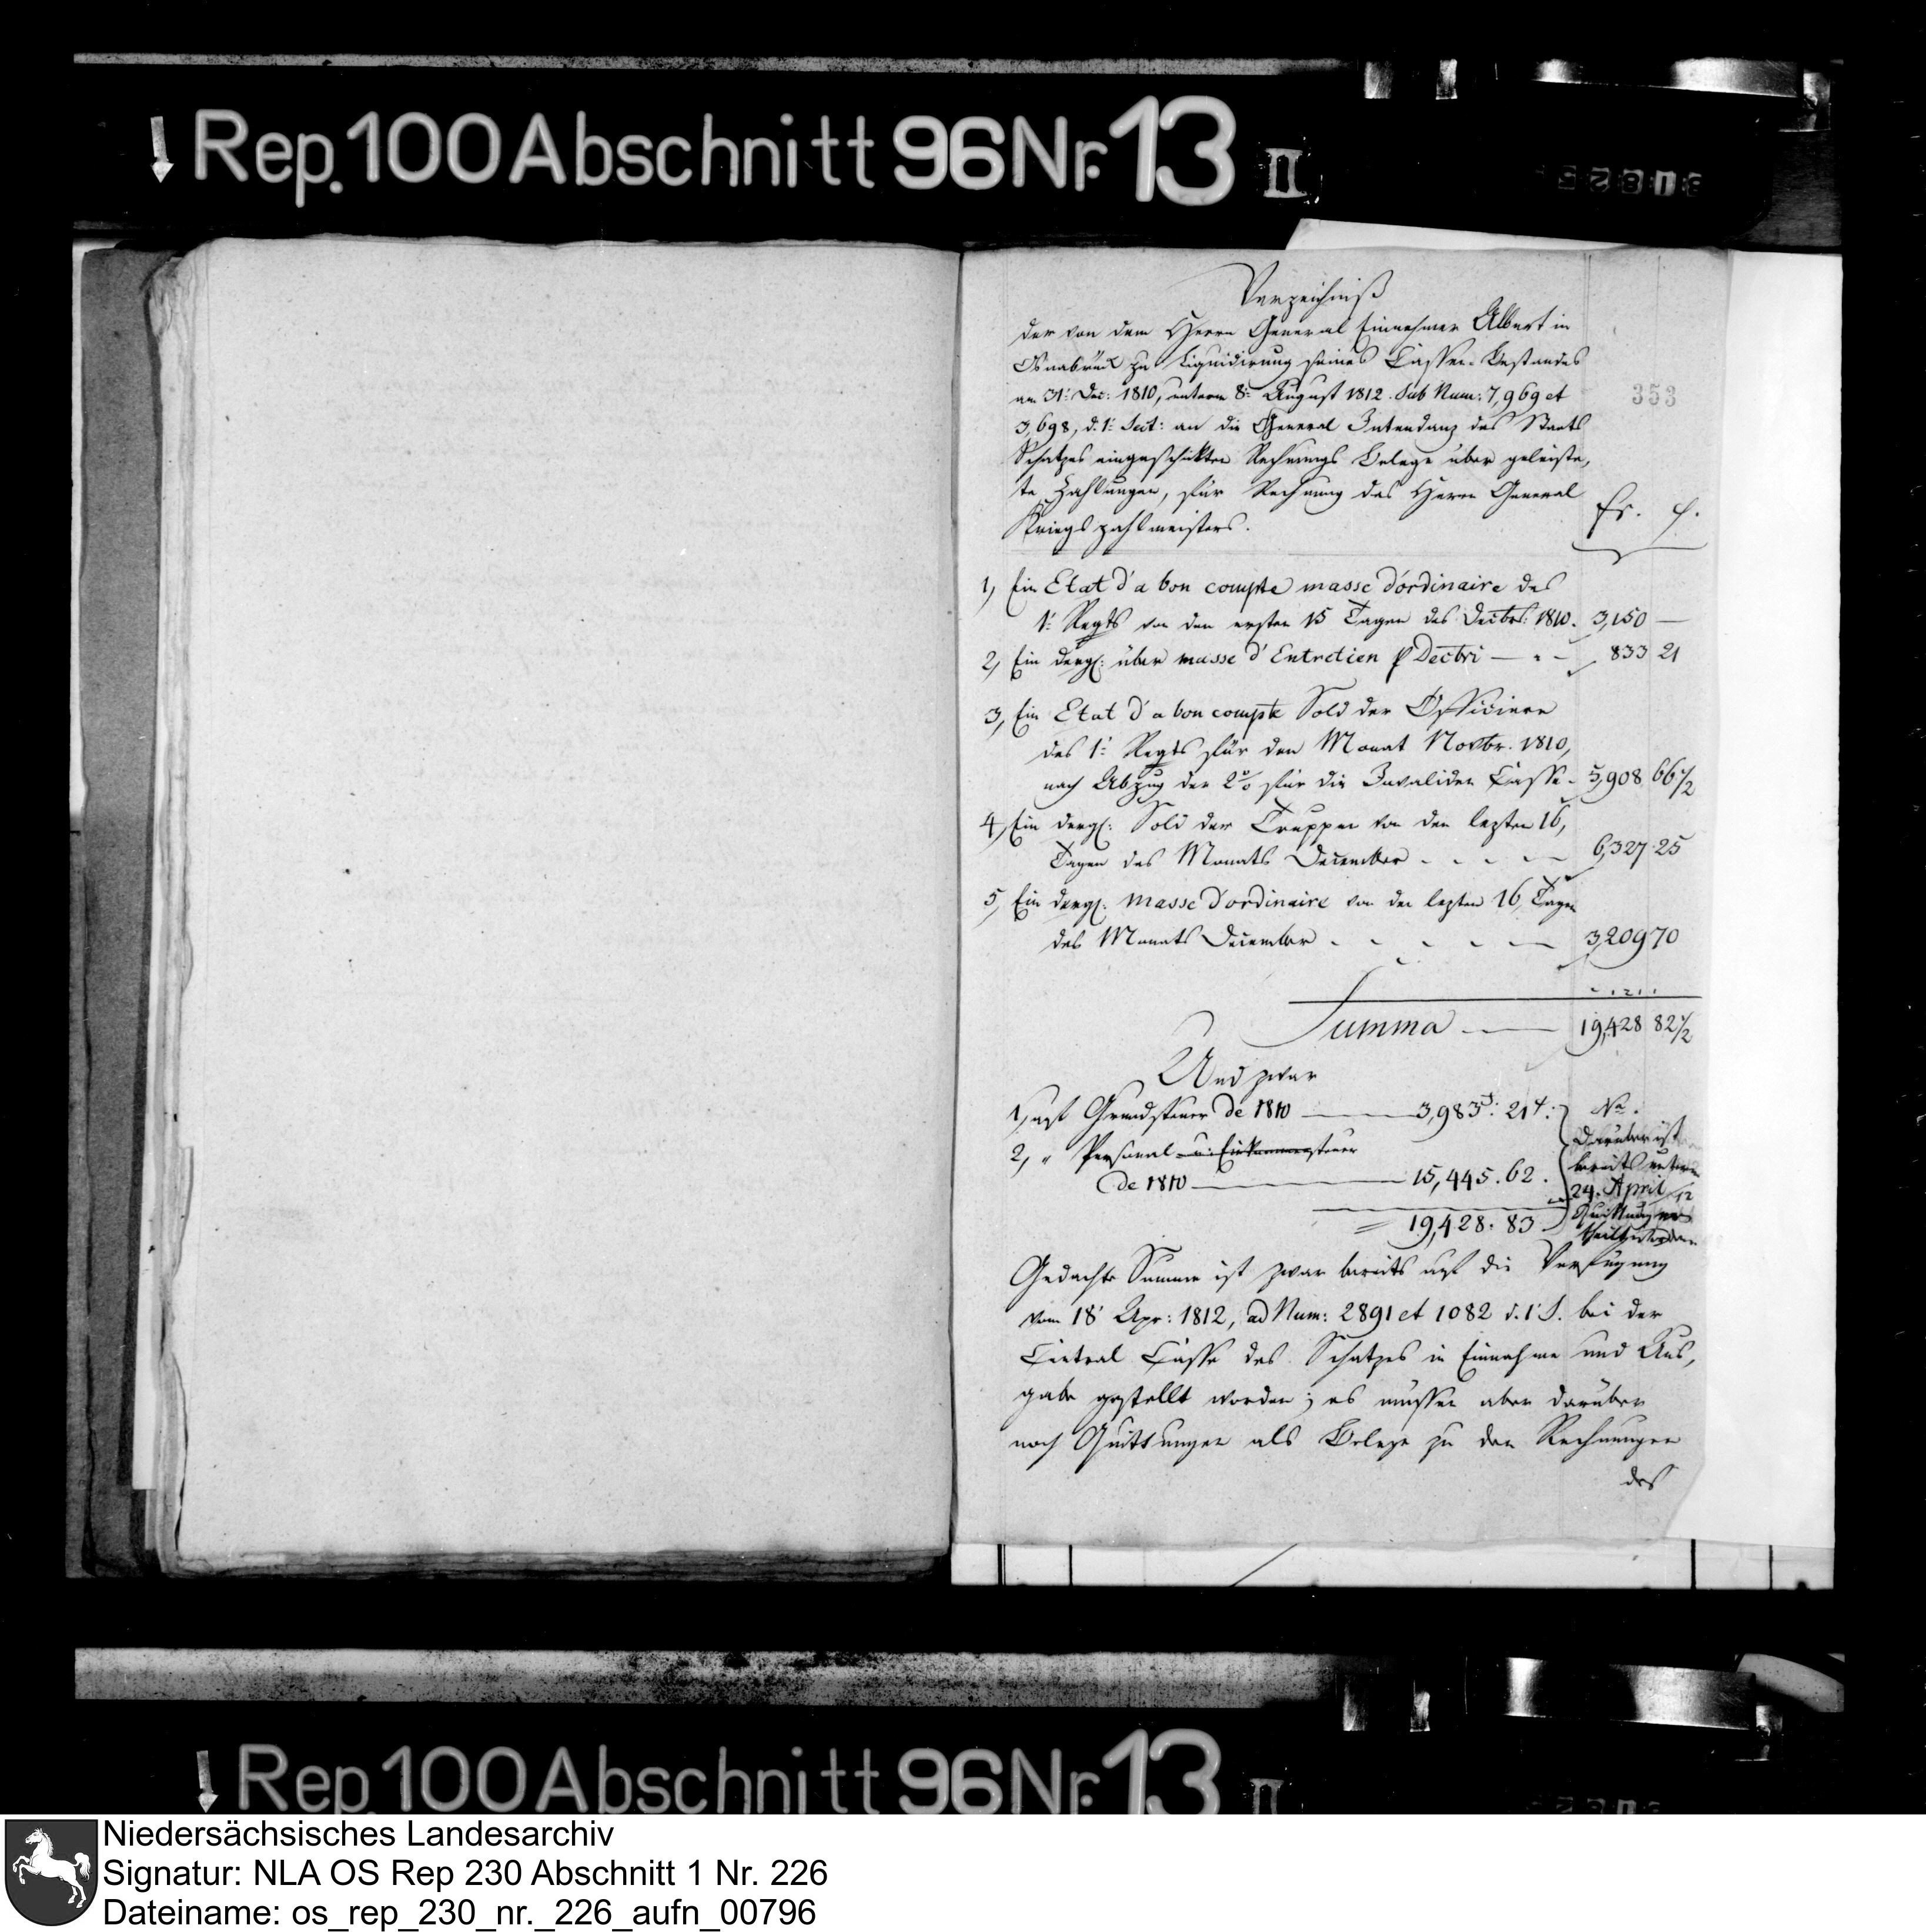 Rep. 100 Abschnitt 96 Nr. 13 II
Verzeichniß
der von dem Herrn General Einnehmer Albert in
Osnabrück zu Liquidirung seines Cassen-Bestandes
am 31: Dec: 1810, unterm 8: August 1812. Sub Num: 7,969 et
3,698, d. 1: Sect: an die General Intendanz des Staats
Schatzes eingeschickten Rechnungs Belege über geleiste,
te Zahlungen, für Rechnung des Herrn General
Kriegszahlmeisters.
353
Fr. C.
1, Ein Etat d'a bon compte masse d'ordinaire des
1: Regts von den ersten 15 Tagen des Decbr: 1810. 3,150 —
2, Ein dergl: über masse d'Entretien p Decbri — 833 21
3, Ein Etat d'a bon compte Sold der Officiere
des 1: Regts für den Monat Novbr. 1810,
nach Abzug der 2% für die Invaliden Casse - 5,908 66 1/2
4, Ein dergl: Sold der Truppen von den lezten 16,
Tagen des Monats December - - - - 6,327 25
5, Ein dergl: masse d'ordinaire von den lezten 16 Tagen
des Monats December - - - - 3,209 70
Summa — 19,428 82 1/2
Und zwar
1, auf Grundsteuer de 1810 — 3,983 : 21
2, " Personal u: Einkommensteuer
de 1810 — 15,445 . 62 .
= 19,428 . 83
Na.
Darüber ist
bereits unterm
24. April 12
Quittung er
theilt worden
Gedachte Summe ist zwar bereits auf die Verfügung
vom 18' Apr: 1812, ad Num: 2891 et 1082 d. 1' S. bei der
Central Casse des Schatzes in Einnahme und Aus,
gabe gestellt worden; es müssen aber darüber
noch Quittungen als Belege zu den Rechnungen
des
Rep. 100 Abschnitt 96 Nr. 13 II
Niedersächsisches Landesarchiv
Signatur: NLA OS Rep 230 Abschnitt 1 Nr. 226
Dateiname: os_rep_230_nr._226_aufn_00796